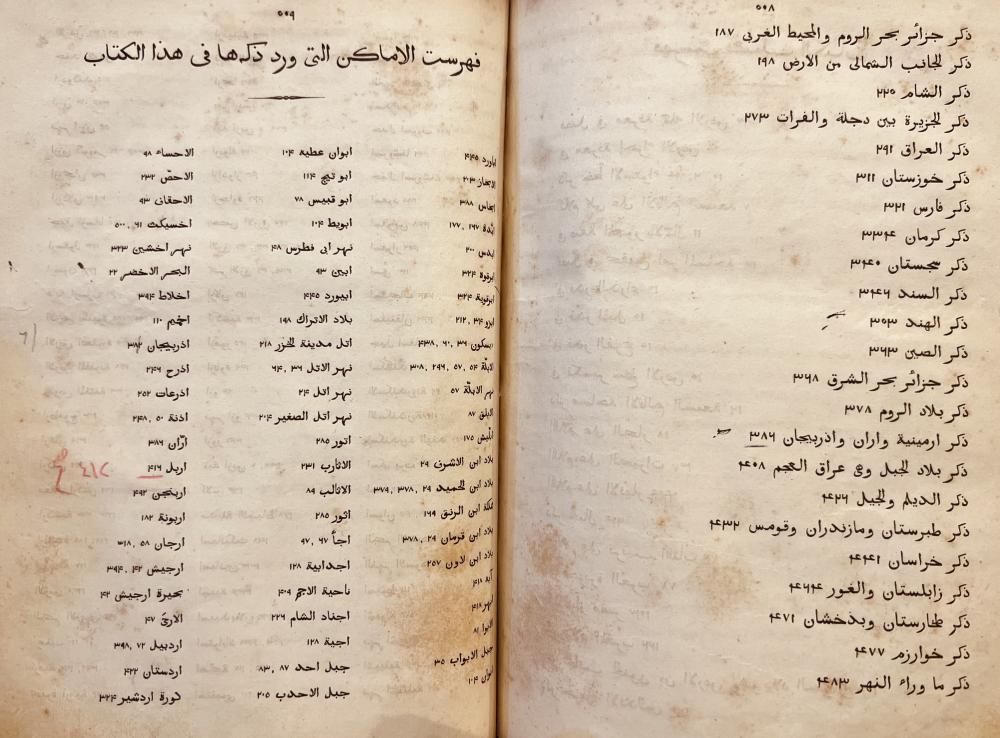 ٥٠٨
ذكر جزائر بحر الروم والمحيط الغربى ١٨٧
ذكر الجانب الشمالى من الارض ١٩٨
ذكر الشام ٢٢٥
ذكر الجزيرة بين دجلة والفرات ٢٧٣
ذكر العراق ٢٩١
ذكر خوزستان ٣١١
ذكر فارس ٣٢١
ذكر كرمان ٣٣٤
ذكر سجستان ٣٤٠
ذكر السند ٣٤٦
ذكر الهند ٣٥٣
ذكر الصين ٣٦٣
ذكر جزائر بحر الشرق ٣٦٨
ذكر بلاد الروم ٣٧٨
ذكر ارمينية واران واذربيجان ٣٨٦
ذكر بلاد الجبل وهى عراق العجم ٤٠٨
ذكر الديلم والجيل ٤٢٦
ذكر طبرستان ومازندران وقومس ٤٣٢
ذكر خراسان ٤٤١
ذكر زابلستان والغور ٤٦٤
ذكر طخارستان وبذخشان ٤٧١
ذكر خوارزم ٤٧٧
ذكر ما وراء النهر ٤٨٣
٥٠٩
فهرست الاماكن التى ورد ذكرها فى هذا الكتاب
٤٤٥
٢٠٣
٣٨٨
١٧٧,١٦٧
٢٠٠
ابرقوة ٣٢٤
ابرقوية ٣٢٤
٢١٢,٣٤
ابسكون ٣٦,٦٠,٤٣٨
الابلّة ٥٤,٥٧,٢٩٦,٣٠٨
نهر الابلّة ٥٧
الابلق ٨٧
١٧٥
بلاد ابن الاشرف ٢٩
بلاد ابن الحميد ٢٩,٣٧٨,٣٧٩
ابن الرنق ١٦٩
بلاد ابن قرمان ٢٩,٣٧٨
بلاد ابن لاون ٢٥٧
ابه ٤١٨
ابهر ٤١٨
الابوا ٨١
جبل الابواب ٣٥
١٠٤
ابوان عطية ١٠٤
ابو تيج ١١٤
ابو قبيس ٧٨
ابويط ١٠٤
نهر ابى فطرس ٤٨
ابين ٩٣
ابيورد ٤٤٥
بلاد الاتراك ١٩٨
اتل مدينة الخزر ٢١٨
نهر الاتل ٣٦,٦٤
نهر اتل ٢٤
نهر اتل الصغير ٢٠٤
اتور ٢٨٥
الاثارب ٢٣١
الاثالب ٨٩
اثور ٢٨٥
اجأ ٦٧,٩٧
اجدابية ١٢٨
ناحية الاجم ٤٠٩
اجناد الشام ٢٢٦
اجية ١٢٨
جبل احد ٨٧,٨٣
جبل الاحدب ٢٠٥
الاحساء ٩٨
الاحصّ ٢٣٢
الاحقاف ٩٣
اخسيكث ٦١,٥٠٠
نهر اخشين ٣٢٣
البحر الاخضر ٢٢
اخلاط ٣٩٤
اخيم ١١٠
اذربيجان ٣٨٦
اذرح ٢٤٦
اذرعات ٢٥٢
اذنة ٥٠,٢٤٨
ارّان ٣٨٦
اربل ٤١٦ ٤١٢
اربنجن ٤٩٢
اربونة ١٨٢
ارجان ٥٨,٣١٨
ارجيش ٤٢,٣٩٤
بحيرة ارجيش ٤٢
الاردن ٤٧
اردبيل ٧٢,٣٩٨
اردستان ٤٢٢
كورة اردشير ٣٢٤